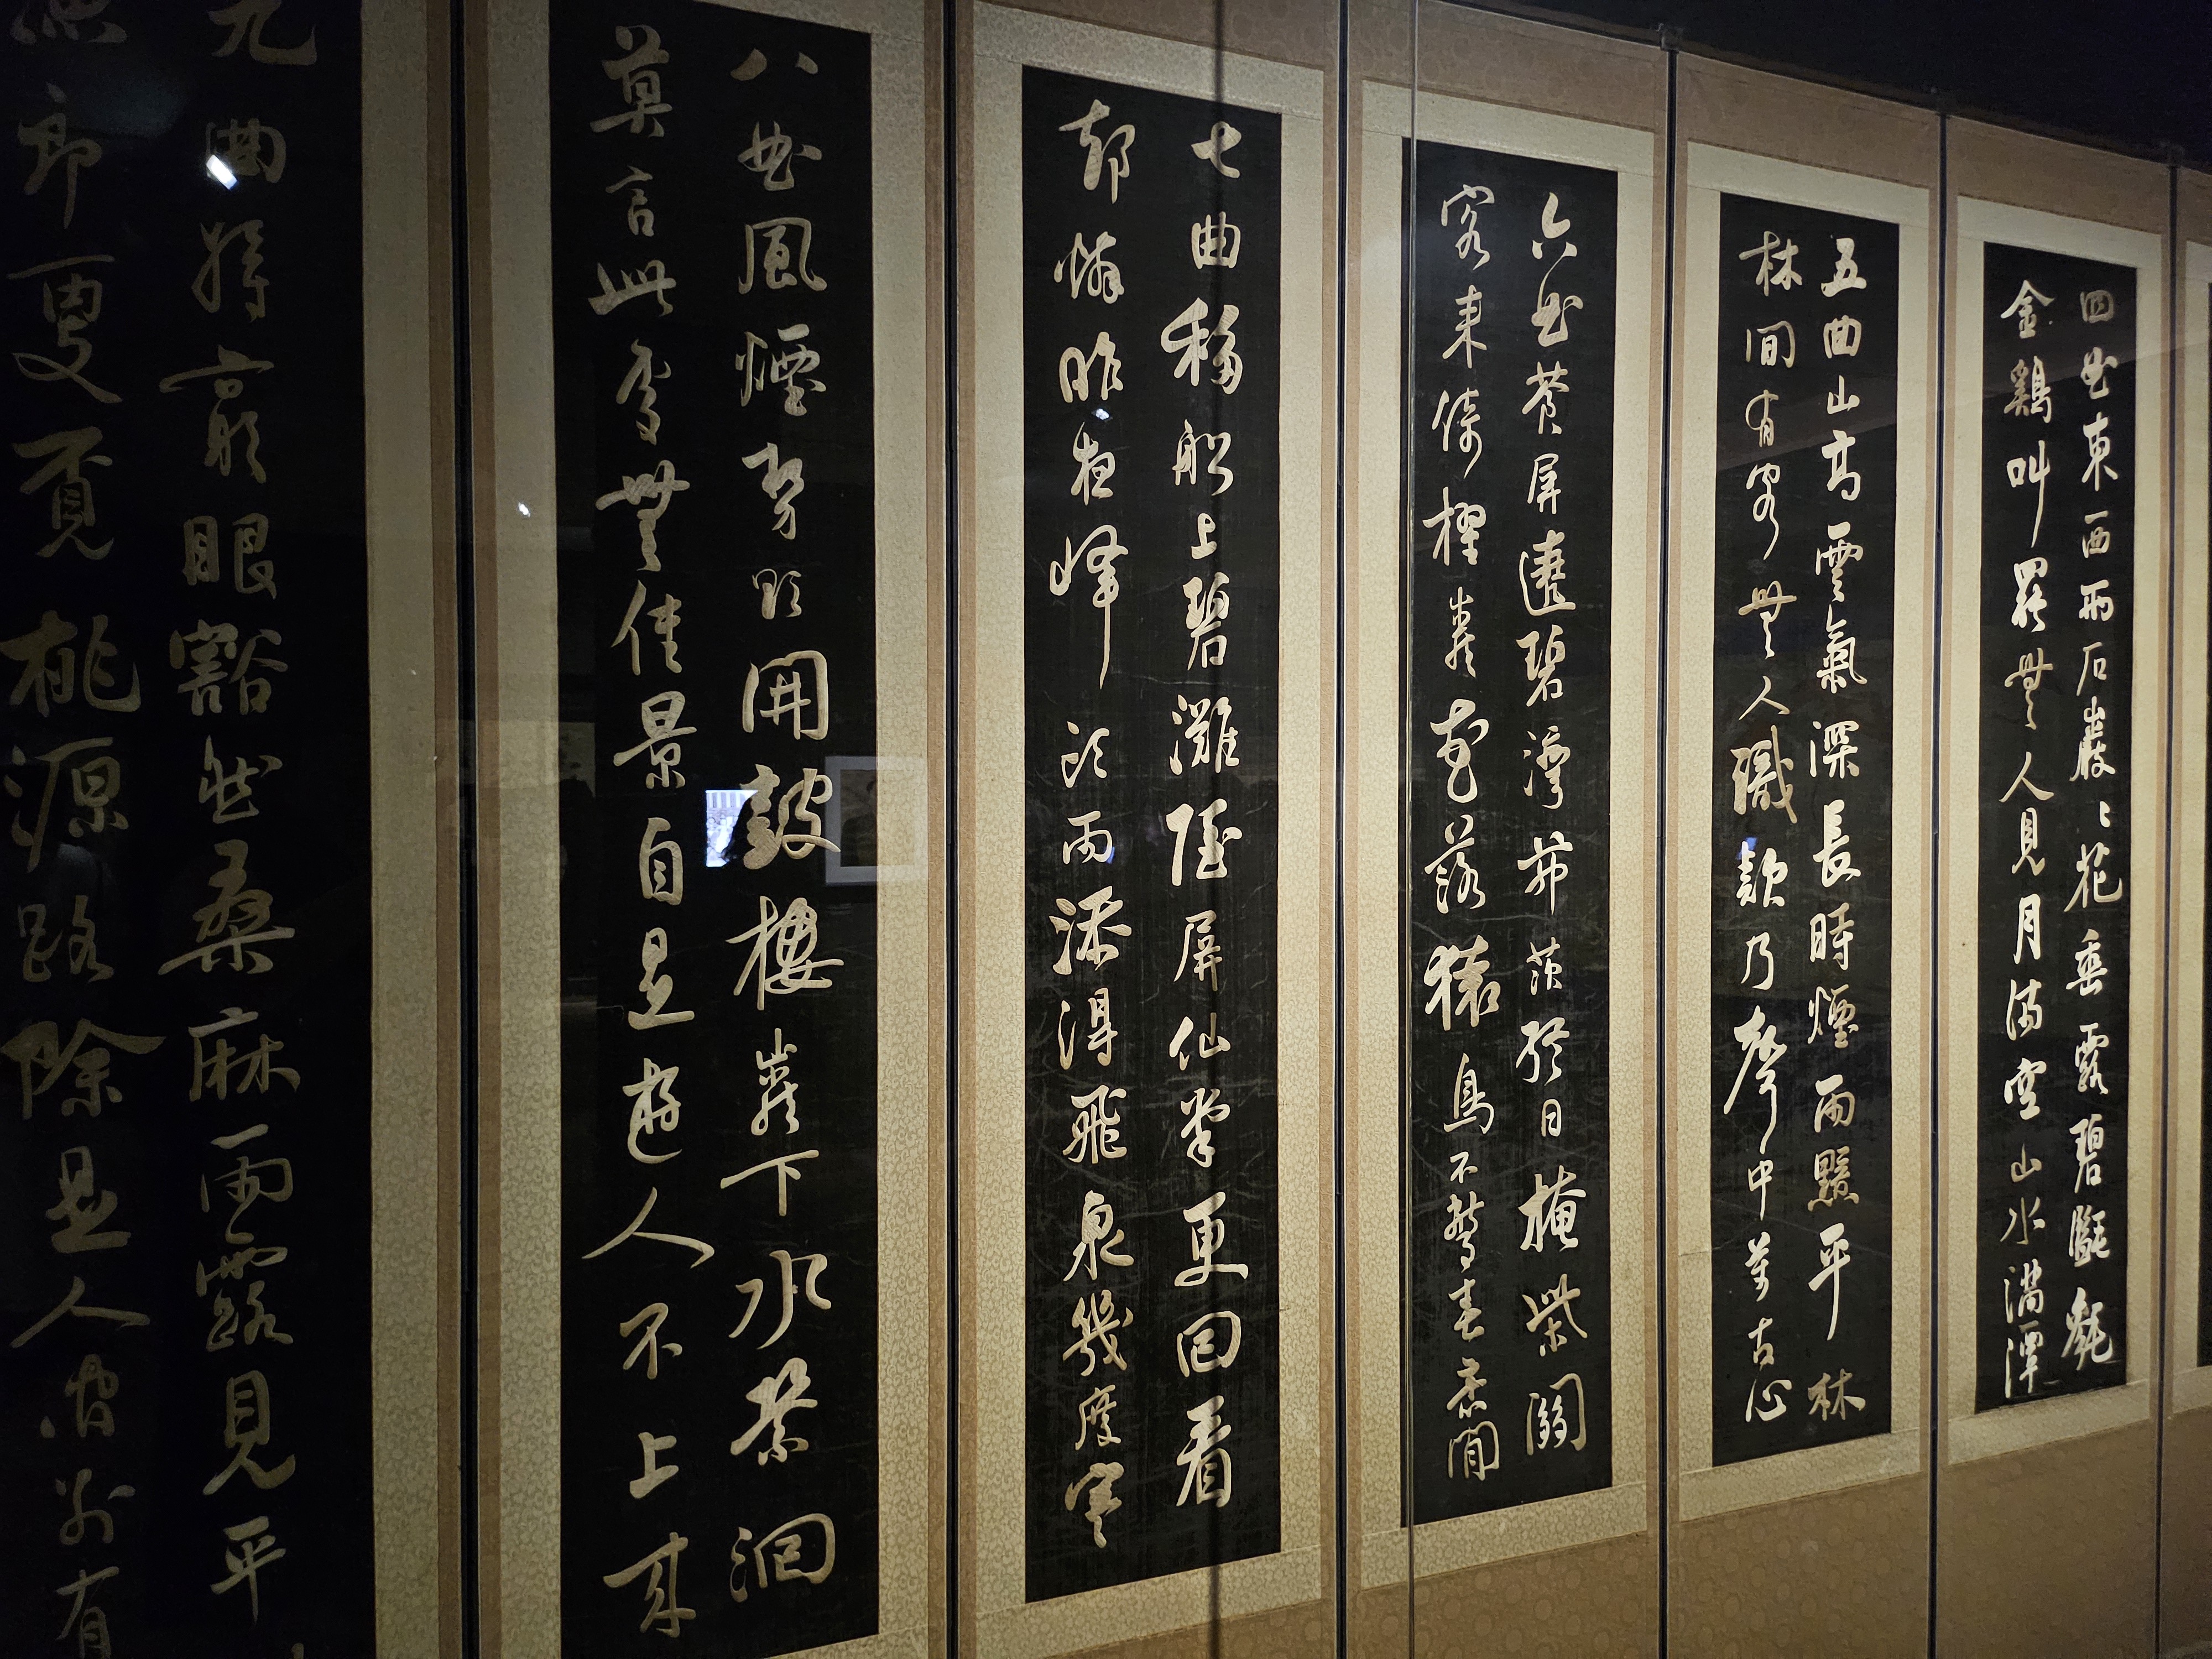 四曲東西兩石巖〻花垂露碧㲯毿
金鷄叫罷無人見月滿空山水滿潭
五曲山高雲氣深長時煙雨黯平林
林間有客無人識欸乃聲中萬古心
六曲蒼屏遶碧灣茅茨終日掩柴關
客來倚櫂巖花落猿鳥不驚春意閒
七曲移船上碧灘隱屏仙掌更回看
却憐昨夜峰頭雨添得飛泉幾度寒
八曲風煙勢欲開鼓樓巖下水縈洄
莫言此處無佳景自是遊人不上來
九曲將窮眼豁然桑麻雨露見平
郎更覓桃源路除是人間別有